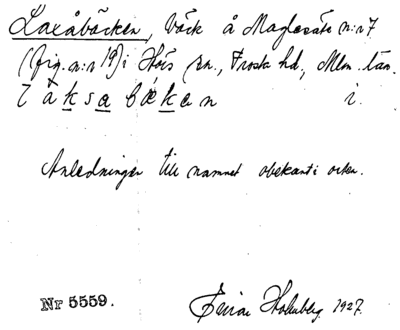 Laxåbäcken, bäck å Maglasäte n:r 7
(fig. n:r 19) i Hörs sn., Frosta hd., Mlm. län.
låksabækan i.
Anledningen till namnet obekant i orten.
Nr 5559. Einar Holmberg 1927.